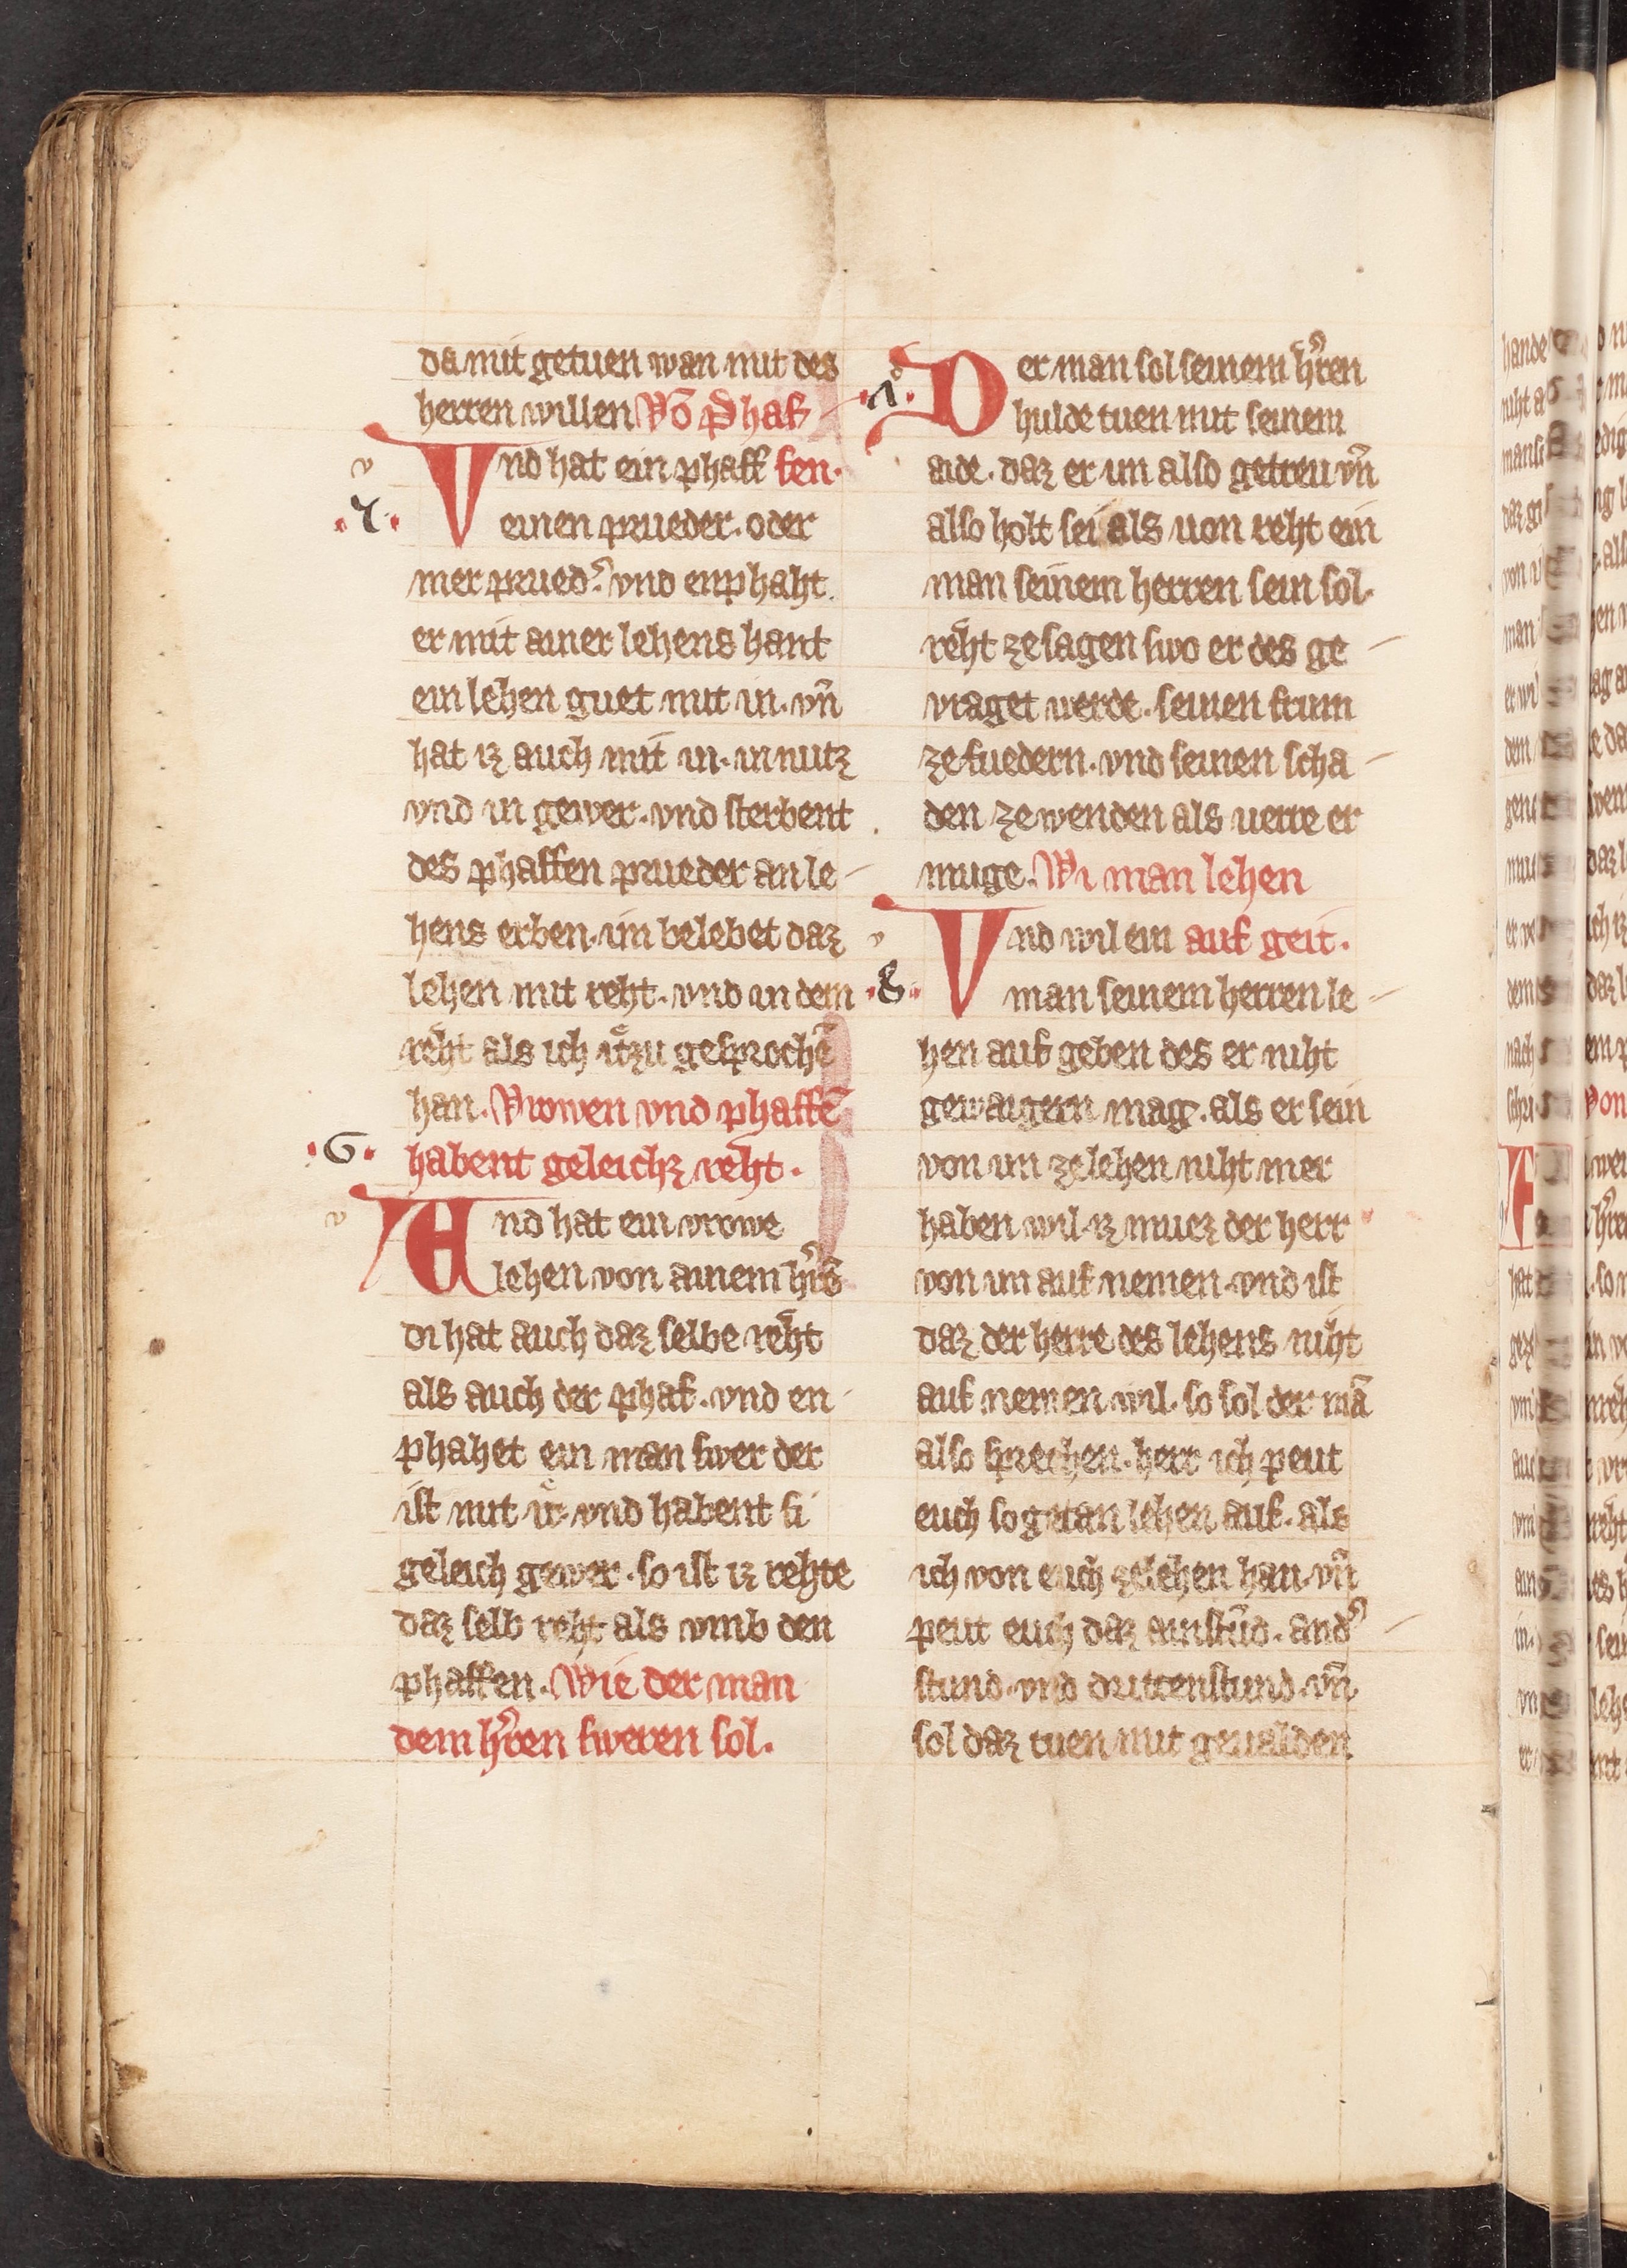 da mit getuen wan mit des
herren willen Vō Phaf
Vnd hat ein phaff fen·
·5· einen prueder· oder
mer prued͛· vnd enphaht
er mit ainer lehens hant
ein lehen guet mit in· vn̄
hat iz auch mit in· in nutz
vnd in gewer· vnd sterbent
des phaffen prueder an le
hens erben· im belebet daz
lehen mit reht· vnd in dem
reht als ich itzu gesprochē
han· Vrowen vnd phaffē
·6· habent geleichz reht·
Vnd hat ein vrowe
lehen von ainem h͛rē
di hat auch daz selbe reht
als auch der phaf· vnd en
phahet ein man swer der
ist mit ir· vnd habent si
geleich gewer· so ist iz rehte
daz selb reht als vmb den
phaffen· Wie der man
dem h͛ren sweren sol·
·7· Der man sol seinem h͛ren
hulde tuen mit seinem
aide· daz er im also getreu vn̄
also holt sei als uon reht ein
man seinem herren sein sol·
reht ze sagen swo er des ge
vraget werde· seinen frum
ze fuedern· vnd seinen scha
den ze wenden als uerre er
muge· Wi man lehen
Vnd wil ein auf geit·
·8· man seinem herren le
hen auf geben des er niht
gewaigern mag· als er sein
von im ze lehen niht mer
haben wil· iz muez der herr
von im auf nemen· vnd ist
daz der herre des lehens niht
auf nemen wil· so sol der mā
also sprechen· herr ich peut
euch so getan lehen auf· als
ich von euch ze lehen han· vn̄
peut euch daz ainstūd· and͛
stund· vnd drittenstund· vn̄
sol daz tuen mit geualden